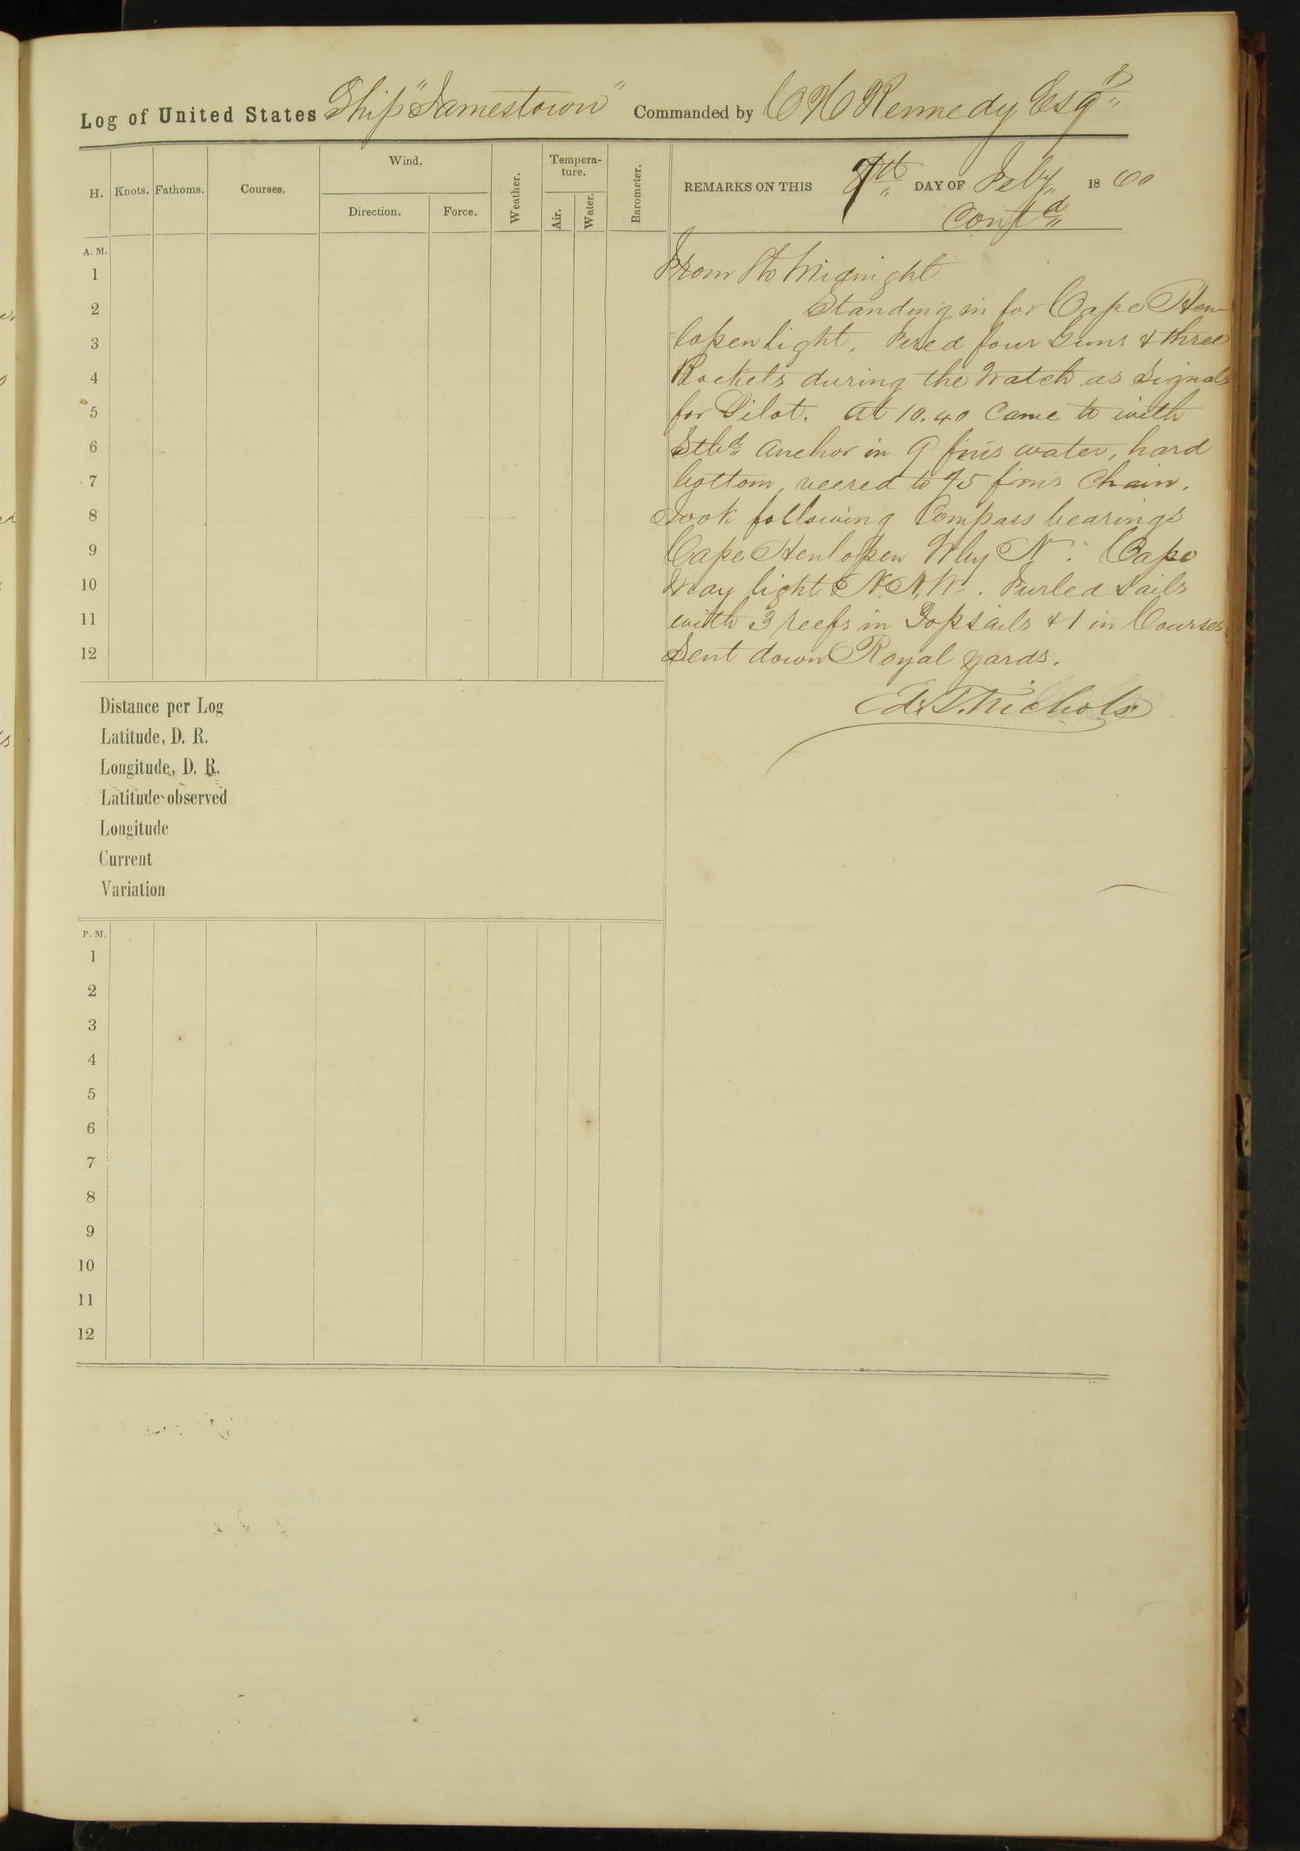 Log of United States Ship "Jamestown" Commanded by C H Kennedy Esqr
H. Knots. Fathoms. Courses. Wind. Direction. Force. Weather. Tempera-ture. Air. Water. Barometer. REMARKS ON THIS 7th DAY OF Feby 1860
Contd
A. M.
From 8 to Midnight
1
Standing in for Cape Hen-
2
lopen light. Fired four Guns & three
3
Rockets during the Watch as Signals
4
for Pilot. At 10.40 Came to with
5
Stbd Anchor in 9 fms water, hard
6
bottom, veered to 75 fms Chain.
7
Took following Compass bearings
8
Cape Henlopen W by N. Cape
9
May light N.N.W. Furled Sails
10
with 3 reefs in Topsails & 1 in Courses
11
Sent down Royal yards.
12
Ed. T. Nichols
Distance per Log
Latitude, D. R.
Longitude, D. R.
Latitude observed
Longitude
Current
Variation
P. M.
1
2
3
4
5
6
7
8
9
10
11
12